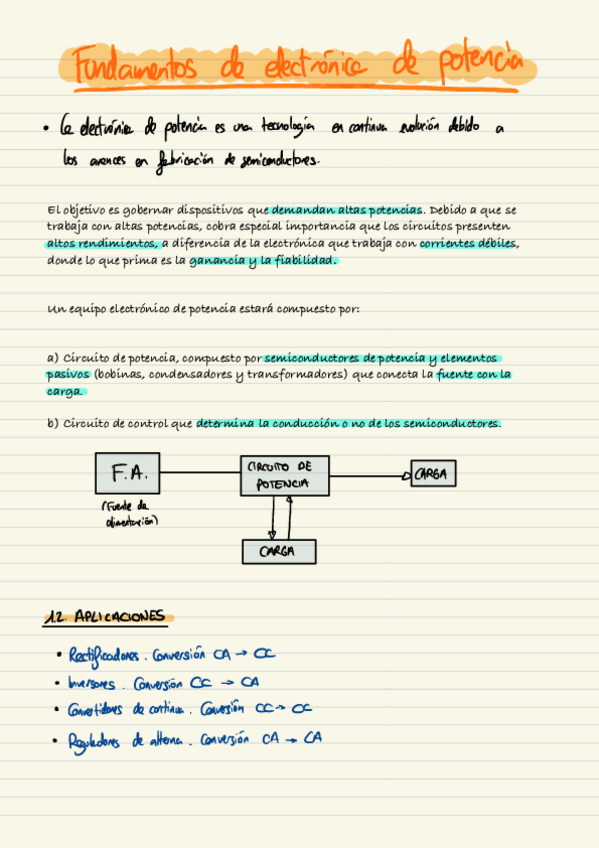 Fundamentos de electrónica de potencia
• La electrónica de potencia es una tecnología en continua evolución debido a
los avances en fabricación de semiconductores.
El objetivo es gobernar dispositivos que demandan altas potencias. Debido a que se
trabaja con altas potencias, cobra especial importancia que los circuitos presenten
altos rendimientos, a diferencia de la electrónica que trabaja con corrientes débiles,
donde lo que prima es la ganancia y la fiabilidad.
Un equipo electrónico de potencia estará compuesto por:
a) Circuito de potencia, compuesto por semiconductores de potencia y elementos
pasivos (bobinas, condensadores y transformadores) que conecta la fuente con la
carga.
b) Circuito de control que determina la conducción o no de los semiconductores.
F.A.
(Fuente de
alimentación)
CIRCUITO DE
POTENCIA
CARGA
CARGA
1.2. APLICACIONES
• Rectificadores. Conversión CA → CC
• Inversores. Conversión CC → CA
• Convertidores de continua. Conversión CC → CC
• Reguladores de alterna. Conversión CA → CA